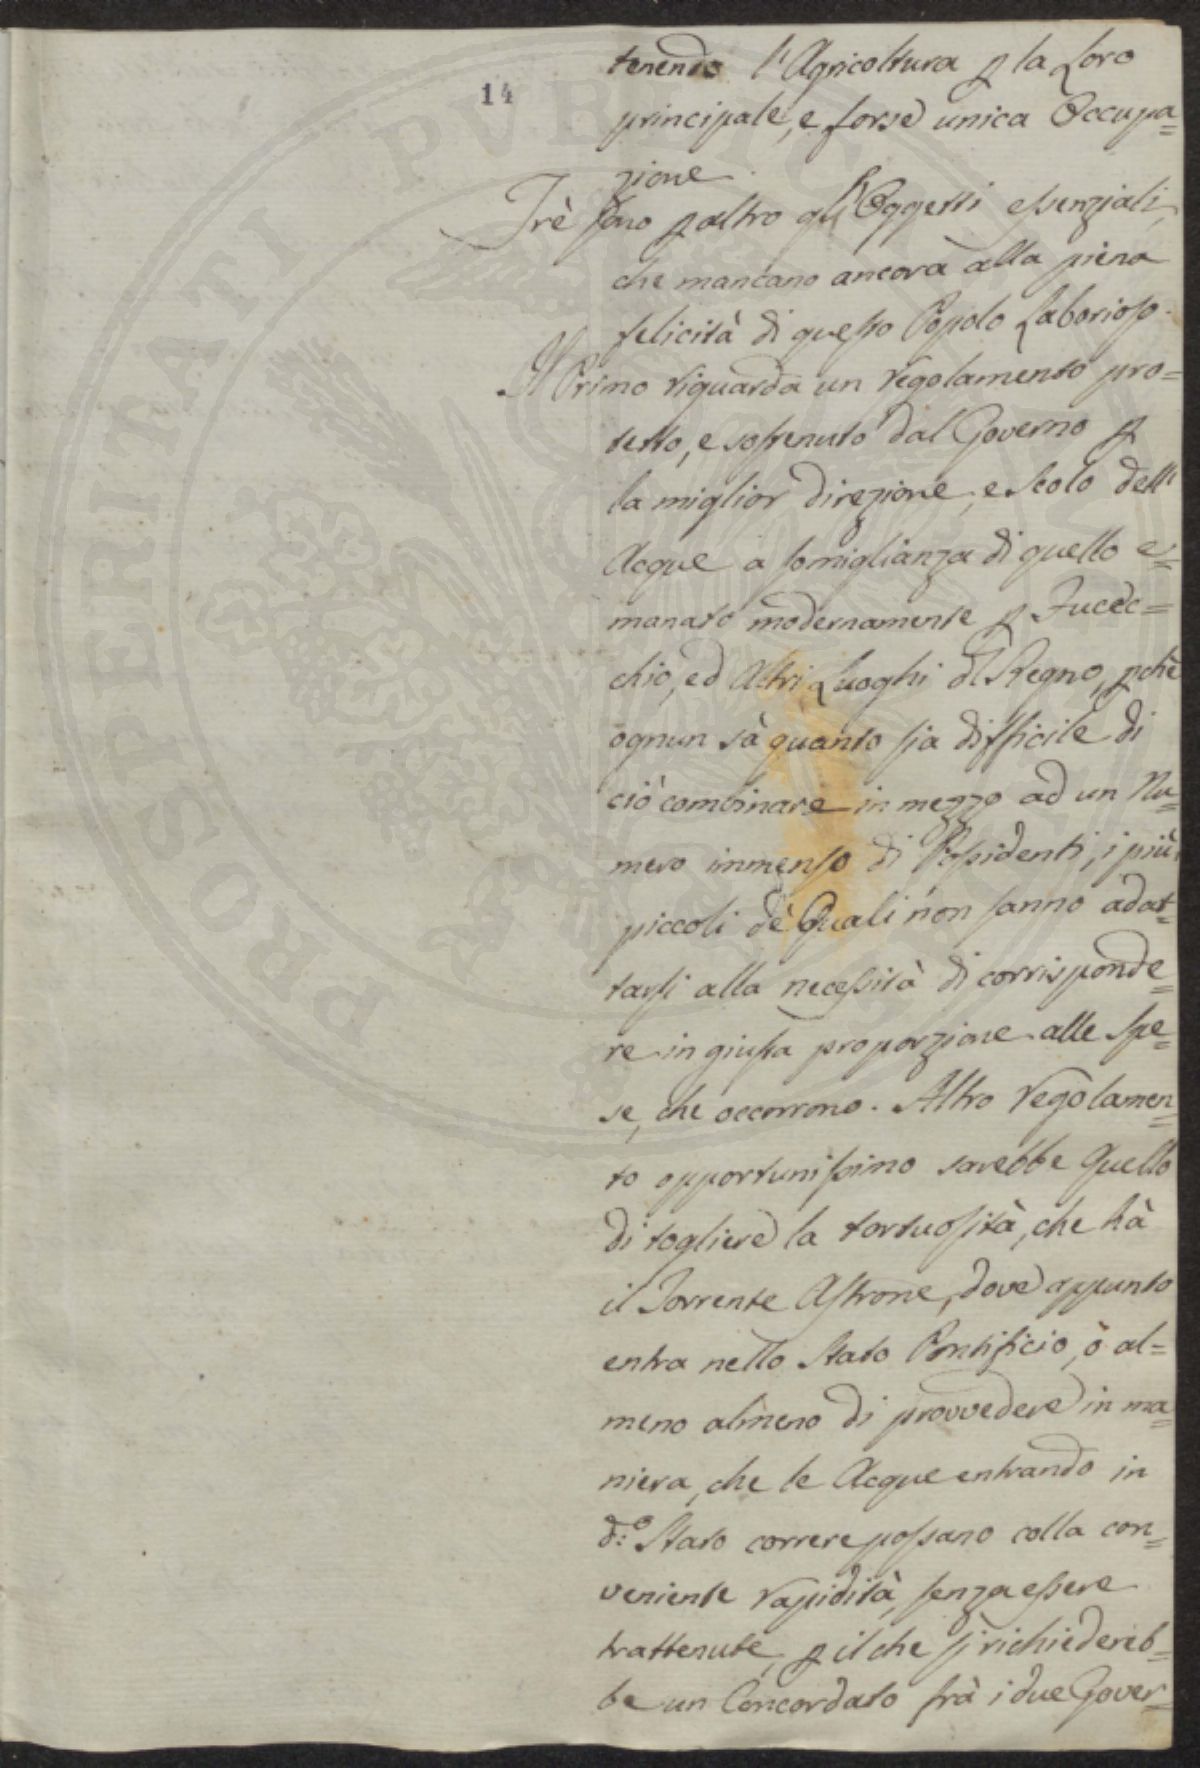 14
tenendo l'Agricoltura p la Loro
principale, e forse unica Occupa=
zione.
Trè sono p altro gli Oggetti essenziali,
che mancano ancora alla piena
felicità di questo Popolo Laborioso.
Il Primo riguarda un regolamento pro=
tetto, e sostenuto dal Governo p
la miglior direzione, e Scolo dell'
Acque a somiglianza di quello e=
manato modernamente p Fucec=
chio, ed Altri Luoghi dl Regno, pchè
ognun sà quanto sia difficile di
ciò combinare in mezzo ad un Nu=
mero immenso di Possidenti, i più
piccoli de Quali non sanno adat=
tarsi alla necessità di corrisponde=
re in giusta proporzione alle Spe=
se, che occorrono. Altro regolamen=
to opportunissimo sarebbe Quello
di togliere la tortuosità, che hà
il Torrente Astrone, dove appunto
entra nello Stato Pontificio, ò al=
meno almeno di provvedere in ma=
niera, che le Acque entrando in
d:o Stato correre possano colla con=
veniente rapidità, senza essere
trattenute, p il che si richiedereb=
be un Concordato frà i due Gover=
PROSPERITATI PUBLICAE